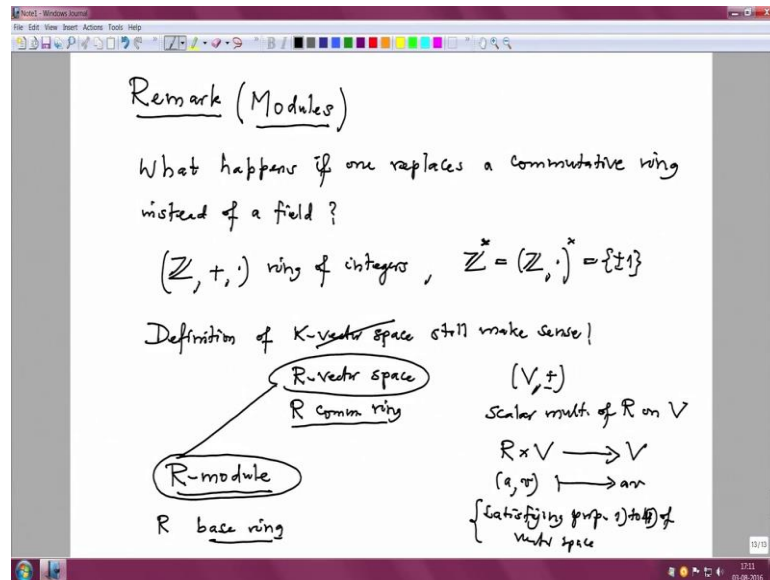 Note1 - Windows Journal
File Edit View Insert Actions Tools Help
Remark (Modules)
What happens if one replaces a commutative ring
instead of a field ?
(ℤ, +, ·) ring of integers, ℤ^× = (ℤ, ·)^× = {±1}
Definition of K-vector space still make sense!
R-vector space
R comm ring
R-module
R base ring
(V, +)
Scalar mult. of R on V
R × V ⟶ V
(a, v) ⟼ av
{ Satisfying prop. 1) to 4) of
vector space
13/13
17:11
03-08-2016